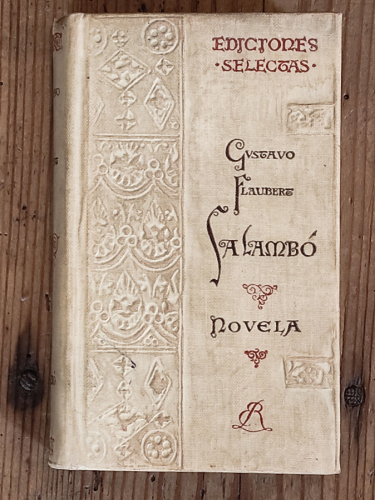 EDICIONES
·SELECTAS·
GVSTAVO
FLAUBERT
SALAMBÓ
NOVELA